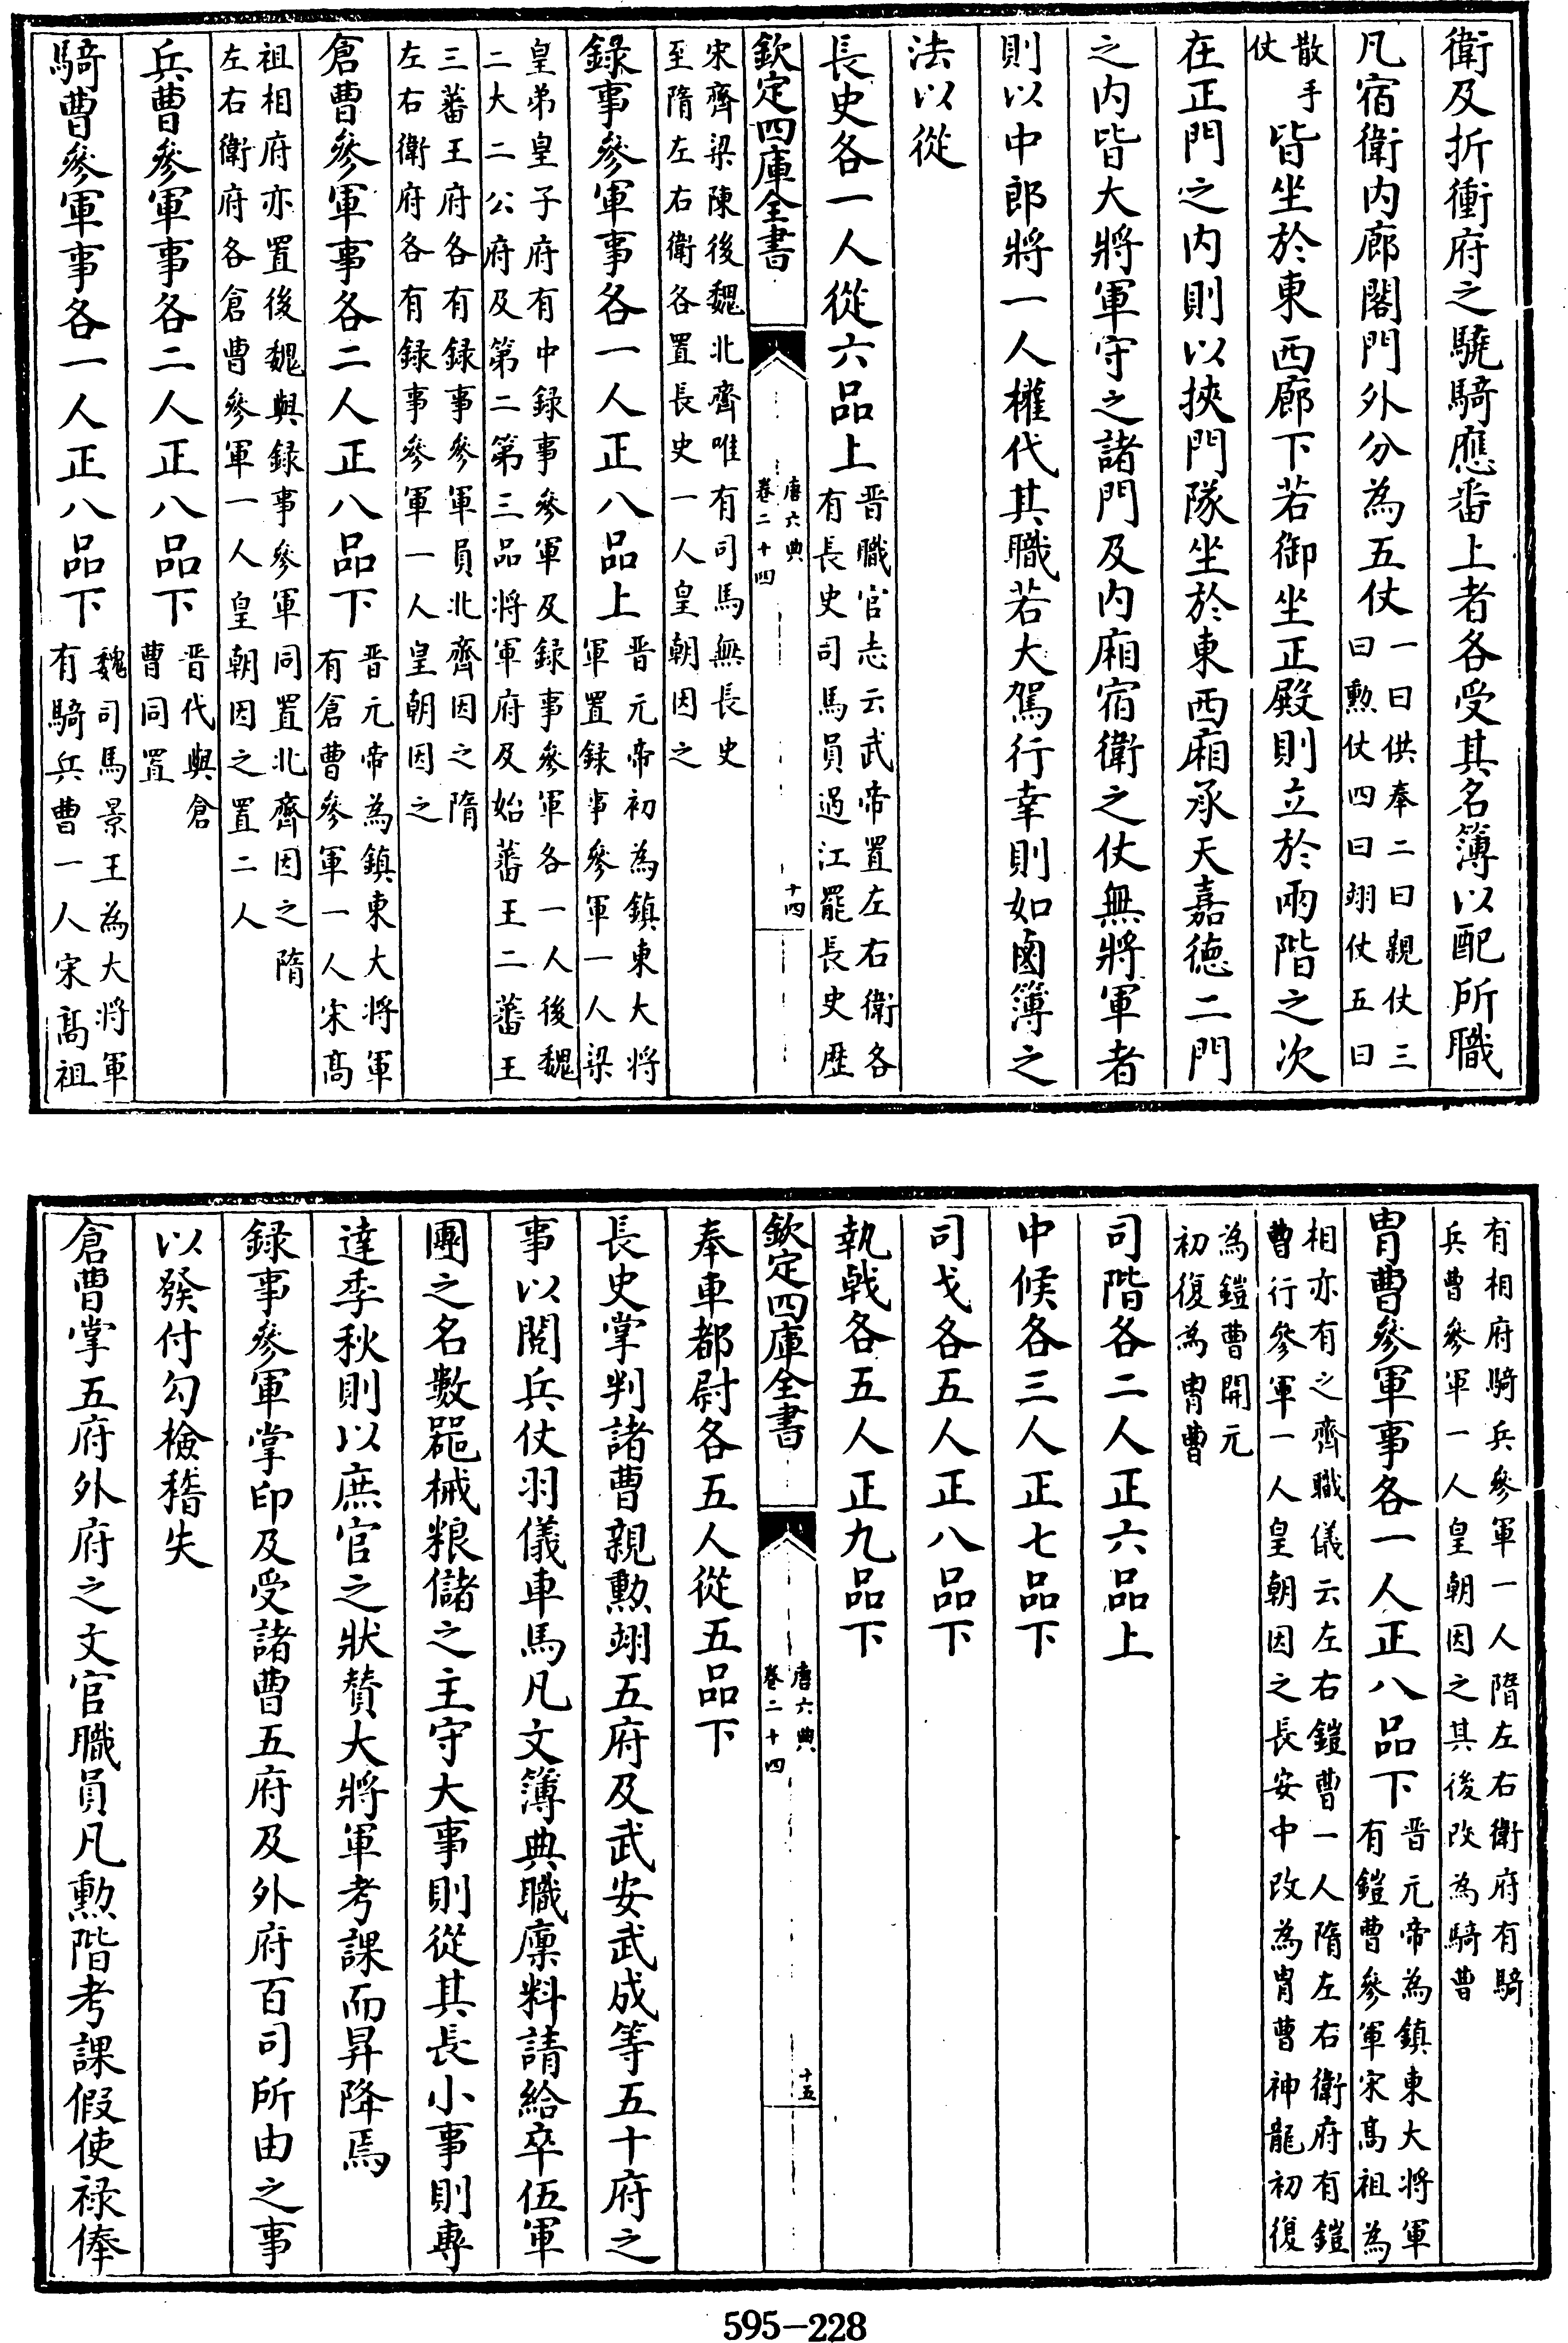 衛及折衝府之驍騎應番上者各受其名簿以配所職
凡宿衛内廊閣門外分為五仗一曰供奉二曰親仗三
曰勲仗四曰翊仗五曰
散手
仗
皆坐於東西廊下若御坐正殿則立於兩階之次
在正門之内則以挾門隊坐於東西廂承天嘉德二門
之内皆大將軍守之諸門及内廂宿衛之仗無將軍者
則以中郎將一人權代其職若大駕行幸則如鹵簿之
法以從
長史各一人從六品上晋職官志云武帝置左右衛各
有長史司馬員過江罷長史歴
欽定四庫全書
唐六典
卷二十四
十四
宋齊梁陳後魏北齊唯有司馬無長史
至隋左右衛各置長史一人皇朝因之
録事參軍事各一人正八品上晋元帝初為鎮東大将
軍置録事參軍一人梁
皇弟皇子府有中録事參軍及録事參軍各一人後魏
二大二公府及第二第三品将軍府及始蕃王二蕃王
三蕃王府各有録事參軍員北齊因之隋
左右衛府各有録事參軍一人皇朝因之
倉曹參軍事各二人正八品下晋元帝為鎮東大将軍
有倉曹參軍一人宋髙
祖相府亦置後魏與録事參軍同置北齊因之隋
左右衛府各倉曹參軍一人皇朝因之置二人
兵曹參軍事各二人正八品下晋代與倉
曹同置
騎曹參軍事各一人正八品下魏司馬景王為大将軍
有騎兵曹一人宋髙祖
有相府騎兵參軍一人隋左右衛府有騎
兵曹參軍一人皇朝因之其後改為騎曹
胄曹參軍事各一人正八品下晋元帝為鎮東大将軍
有鎧曹參軍宋髙祖為
相亦有之齊職儀云左右鎧曹一人隋左右衛府有鎧
曹行參軍一人皇朝因之長安中改為胄曹神龍初復
為鎧曹開元
初復為胄曹
司階各二人正六品上
中候各三人正七品下
司戈各五人正八品下
執戟各五人正九品下
欽定四庫全書
唐六典
卷二十四
十五
奉車都尉各五人從五品下
長史掌判諸曹親勲翊五府及武安武成等五十府之
事以閲兵仗羽儀車馬凡文簿典職廩料請給卒伍軍
團之名數器械粮儲之主守大事則從其長小事則專
達季秋則以庶官之狀贊大將軍考課而昇降焉
録事參軍掌印及受諸曹五府及外府百司所由之事
以發付勾檢稽失
倉曹掌五府外府之文官職員凡勲階考課假使禄俸
595-228